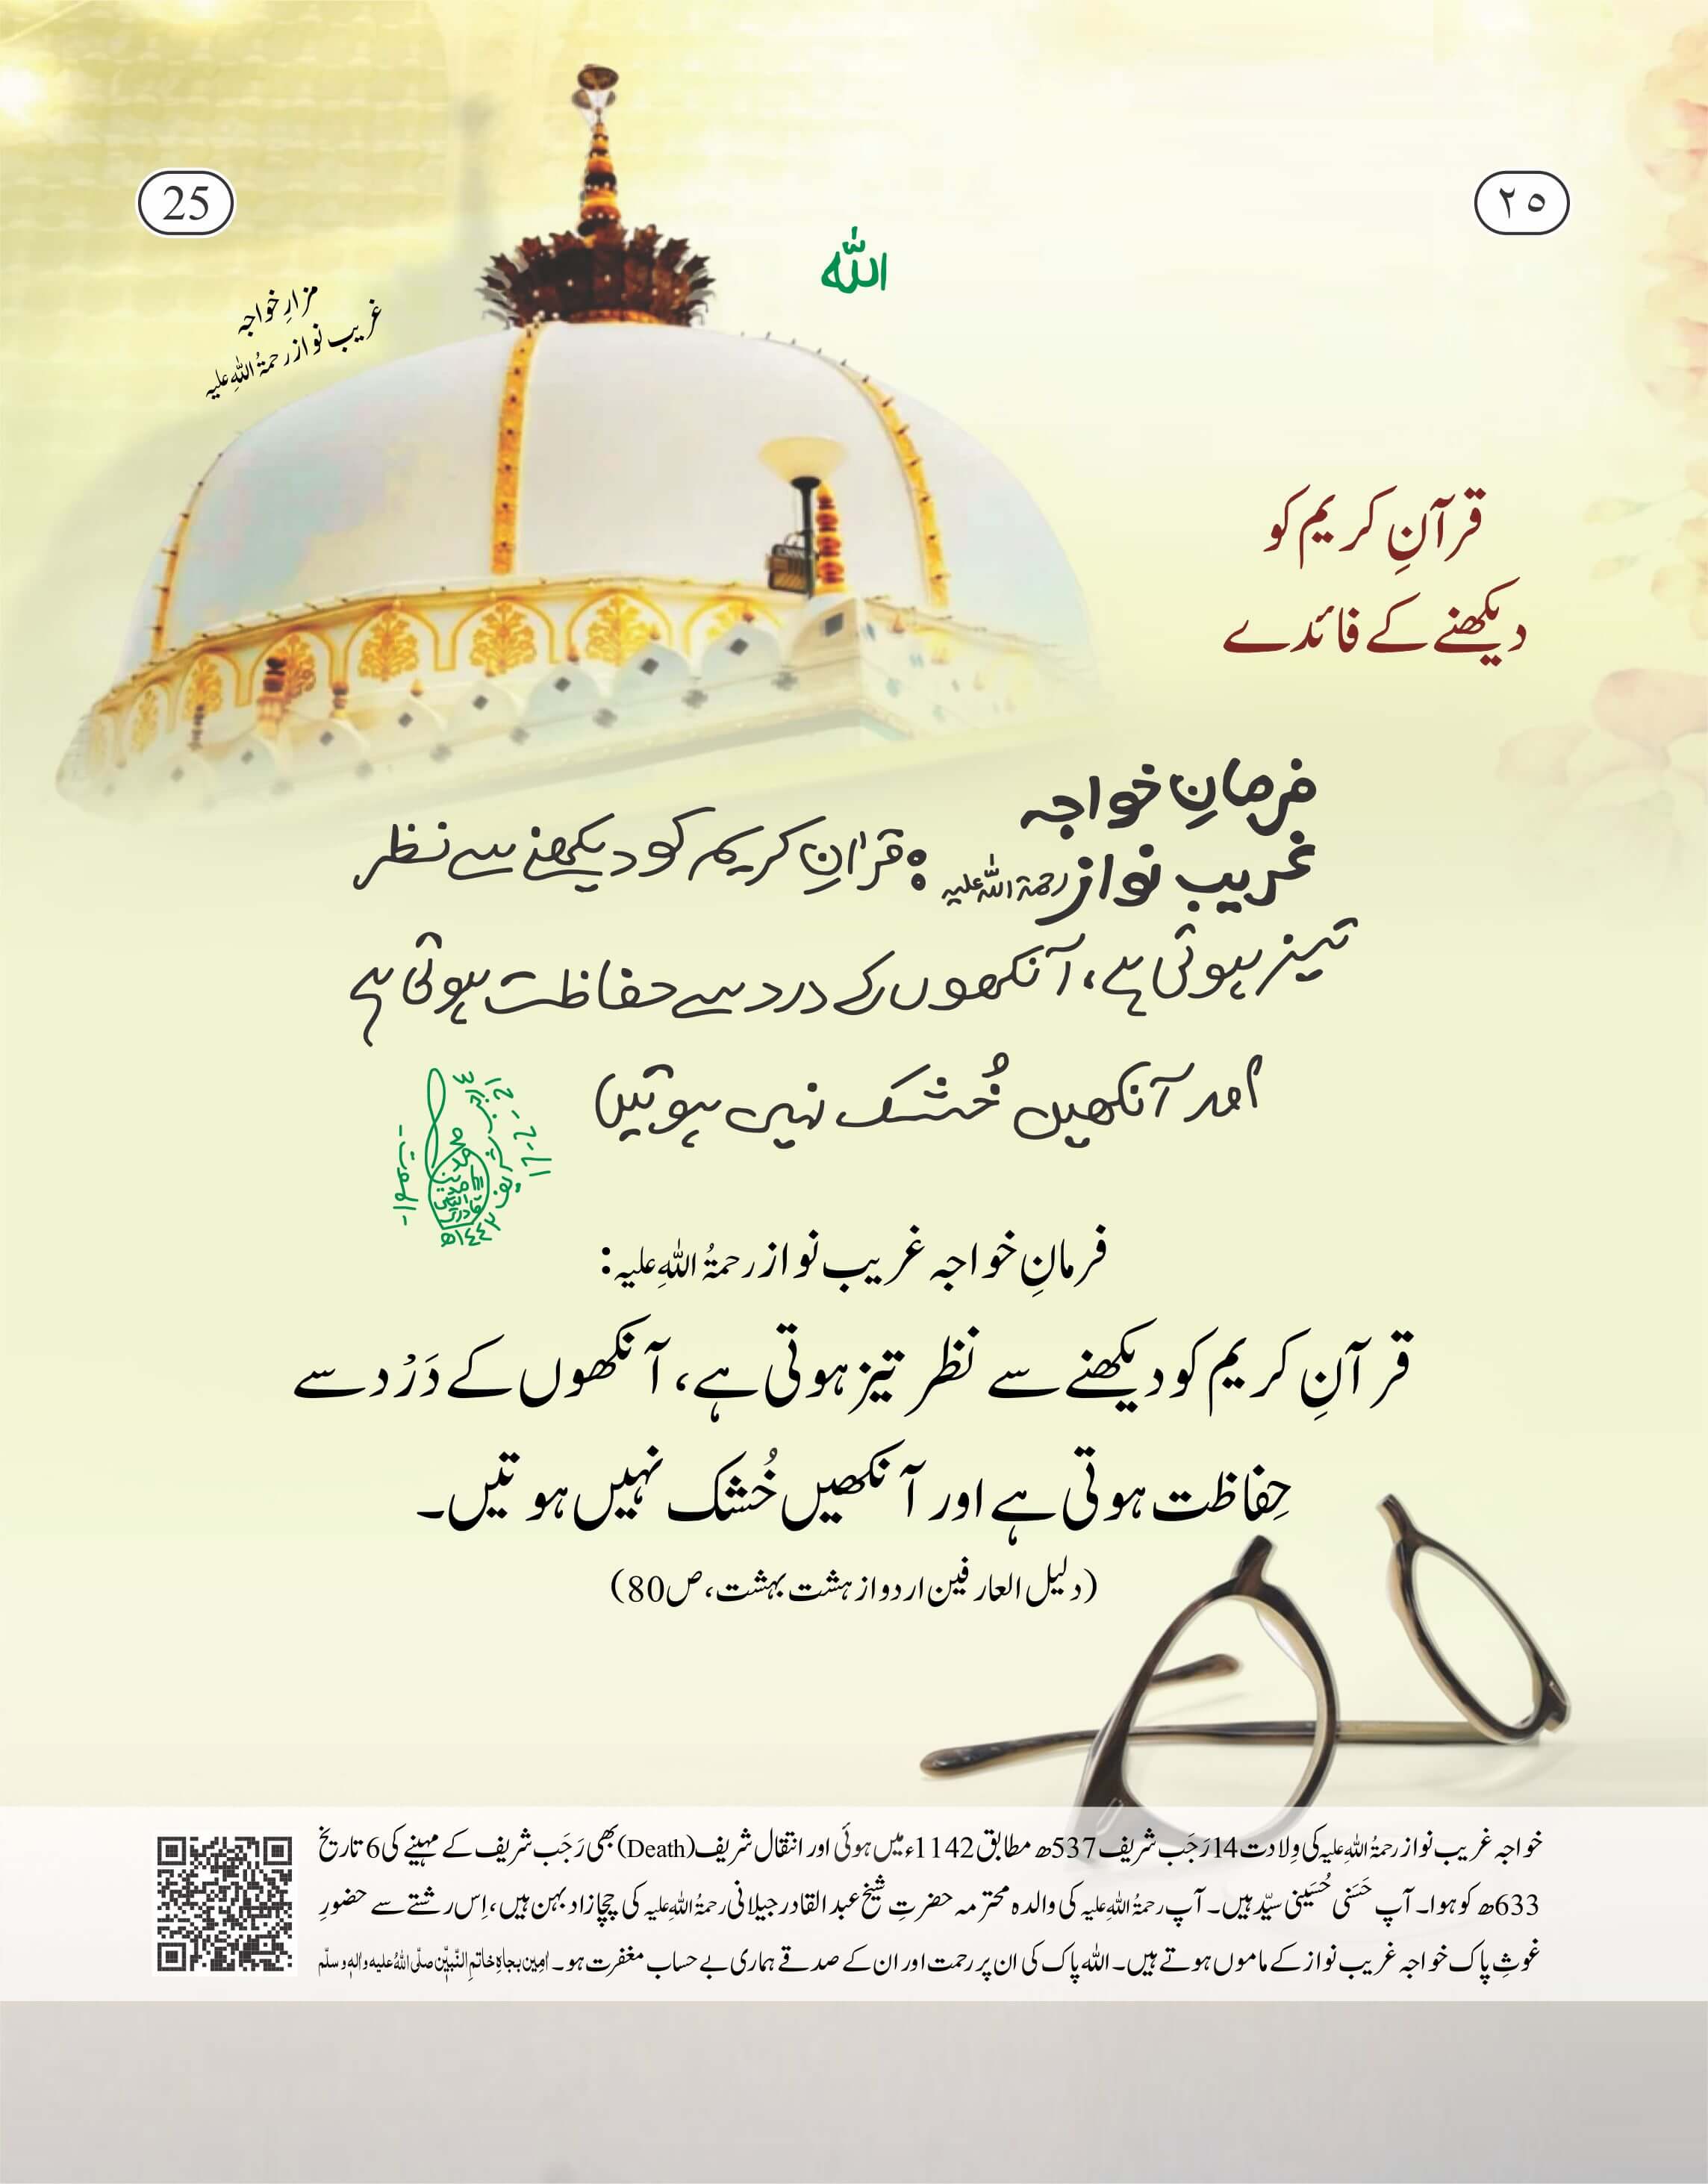 25
٢٥
اللہ
مزارِ خواجہ
غریب نواز رحمۃُ اللہِ علیہ
قرآنِ کریم کو
دیکھنے کے فائدے
فرمانِ خواجہ
غریب نواز رحمۃ اللہ علیہ : قراٰنِ کریم کو دیکھنے سے نظر
تیز ہوتی ہے، آنکھوں کے درد سے حفاظت ہوتی ہے
اور آنکھیں خُشک نہیں ہوتیں
فرمانِ خواجہ غریب نواز رحمۃُ اللہِ علیہ:
قرآنِ کریم کو دیکھنے سے نظر تیز ہوتی ہے، آنکھوں کے دَرْد سے
حِفاظت ہوتی ہے اور آنکھیں خُشک نہیں ہوتیں۔
(دلیل العارفین اردو از ہشت بہشت، ص80)
خواجہ غریب نواز رحمۃُ اللہِ علیہ کی وِلادت 14رَجَب شریف 537ھ مطابق 1142ء میں ہوئی اور انتقال شریف (Death) بھی رَجَب شریف کے مہینے کی 6 تاریخ
633ھ کو ہوا۔ آپ حَسَنی حُسَینی سیّد ہیں۔ آپ رحمۃُ اللہِ علیہ کی والدہ محترمہ حضرتِ شیخ عبد القادر جیلانی رحمۃُ اللہِ علیہ کی چچازاد بہن ہیں، اِس رشتے سے حضورِ
غوثِ پاک خواجہ غریب نواز کے ماموں ہوتے ہیں۔ اللہ پاک کی ان پر رحمت اور ان کے صدقے ہماری بے حساب مغفرت ہو۔ اٰمِین بِجاہِ خاتمِ النَّبِیّٖن صلَّی اللہُ علیہ واٰلہٖ وسلَّم